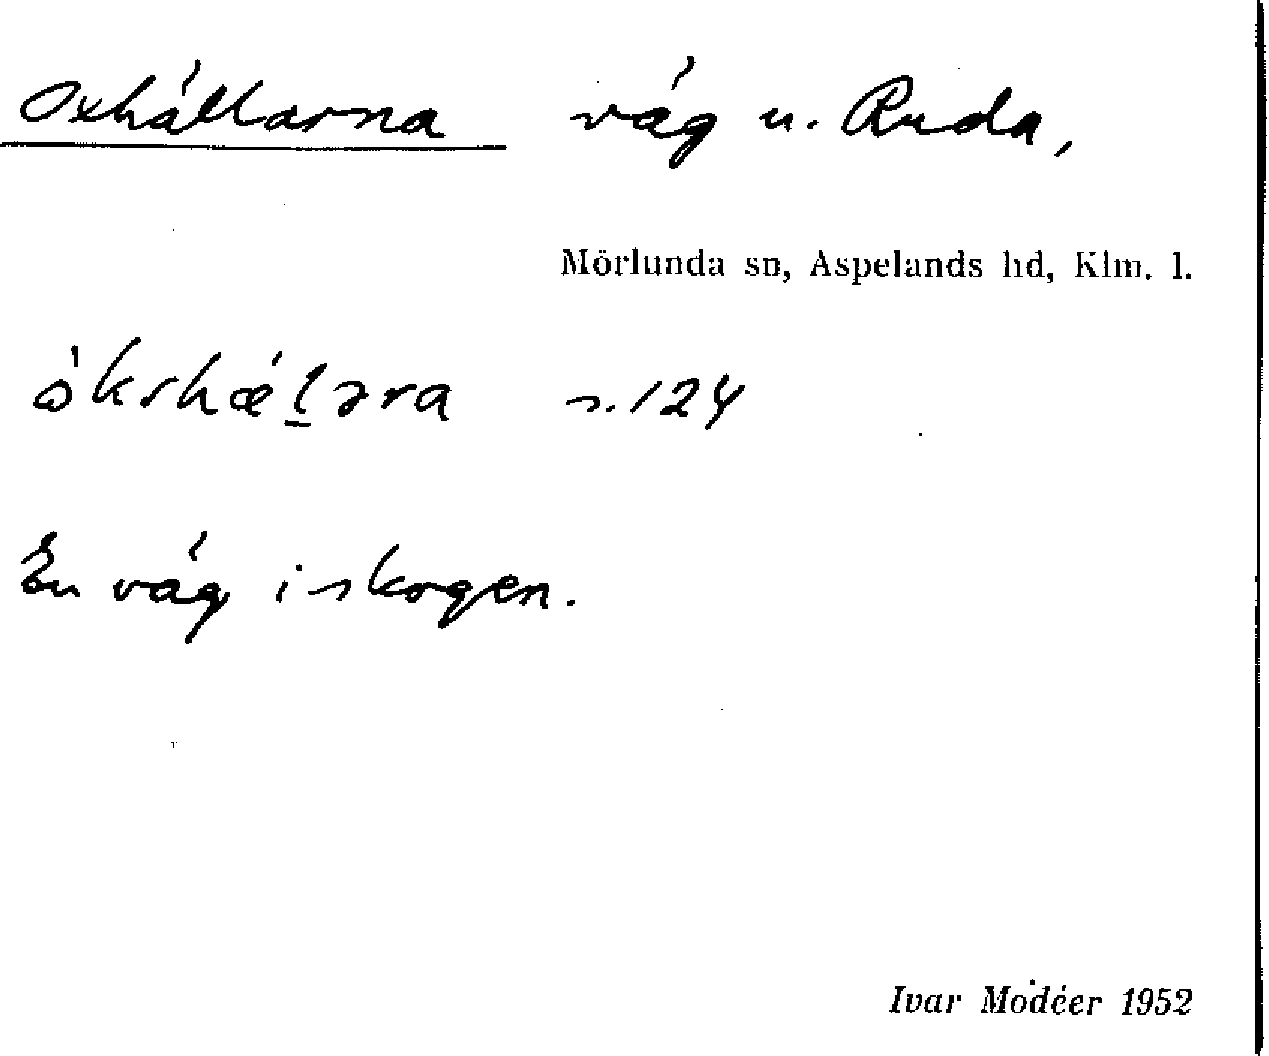 Oxhällarna väg u. Ruda,
Mörlunda sn, Aspelands hd, Klm. l.
òkshǽl̲əra s. 124
En väg i skogen.
Ivar Modéer 1952